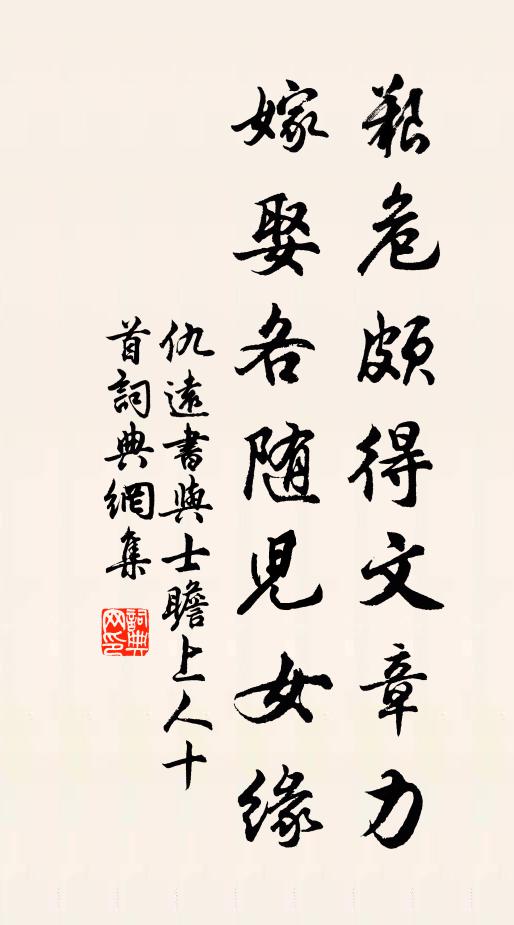 艱危頗得文章力
嫁娶各随児女緣
仇遠書與士瞻上人十
首詞典網集
詞典网印